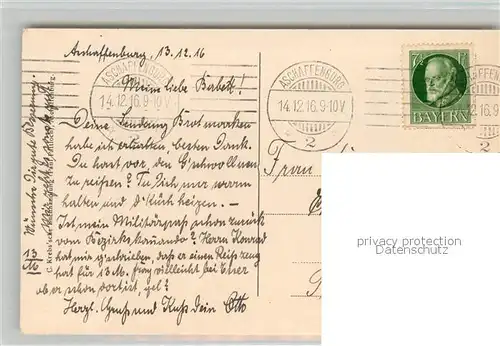 Aschaffenburg 13.12.16
Meine liebe Babett!
Deine Sendung Brotmarken
habe ich erhalten, besten Dank.
Du hast vor, den G'schwollnen
zu reißen? Tu Dich nur warm
halten und d' Küch heizen. –
Ist mein Militärpaß schon zurück
vom Bezirkskommando? Herrn Konrad
hat mir geschrieben, dass er einen
hat für 13 M. Frag vielleicht bei
ob er schon dort ist, gel?
Herzl. Gruß und Kuß Dein Otto
Wünsche Dir gute Besserung.
13/16
ASCHAFFENBURG
14.12.16.9-10V
ASCHAFFENBURG
14.12.16.9-10V
2
12.16.9-10V
2
BAYERN
Frau
privacy protection
Datenschutz